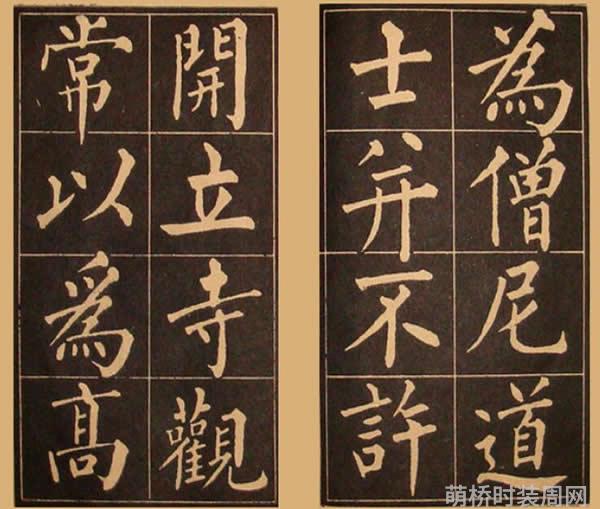 為僧尼道
士并不許
開立寺觀
常以為高
萌桥时装周网